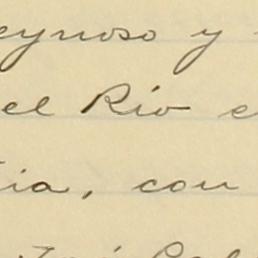 eynoso y
el Río e
ia, con